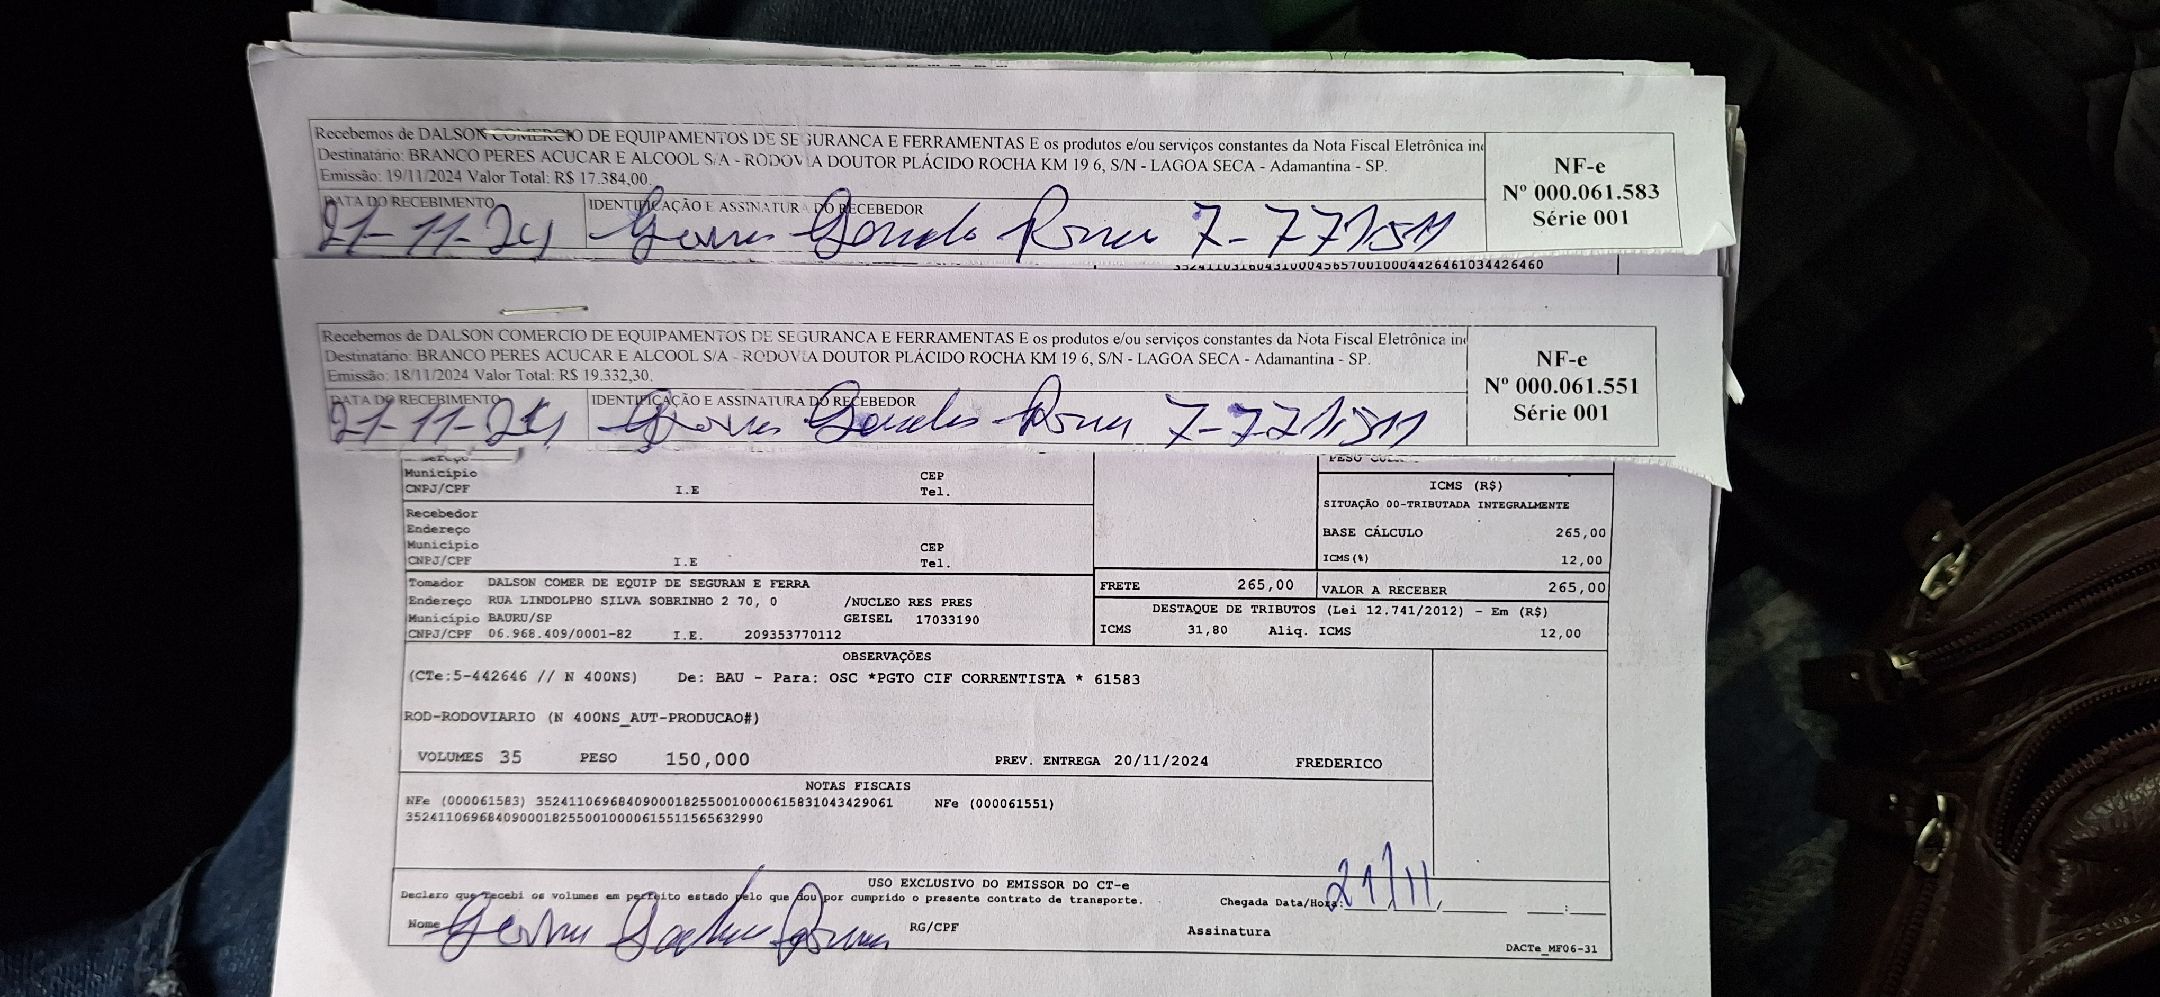 Recebemos de DALSON COMERCIO DE EQUIPAMENTOS DE SEGURANCA E FERRAMENTAS E os produtos e/ou serviços constantes da Nota Fiscal Eletrônica
Destinatário: BRANCO PERES ACUCAR E ALCOOL S/A - RODOVIA DOUTOR PLÁCIDO ROCHA KM 19 6, S/N - LAGOA SECA - Adamantina - SP.
Emissão: 19/11/2024 Valor Total: R$ 17.384,00.
NF-e
Nº 000.061.583
Série 001
DATA DO RECEBIMENTO
IDENTIFICAÇÃO E ASSINATURA DO RECEBEDOR
21-11-24
Recebemos de DALSON COMERCIO DE EQUIPAMENTOS DE SEGURANCA E FERRAMENTAS E os produtos e/ou serviços constantes da Nota Fiscal Eletrônica
Destinatário: BRANCO PERES ACUCAR E ALCOOL S/A - RODOVIA DOUTOR PLÁCIDO ROCHA KM 19 6, S/N - LAGOA SECA - Adamantina - SP.
Emissão: 18/11/2024 Valor Total: R$ 19.332,30.
NF-e
Nº 000.061.551
Série 001
DATA DO RECEBIMENTO
IDENTIFICAÇÃO E ASSINATURA DO RECEBEDOR
21-11-24
Município CEP
CNPJ/CPF I.E Tel.
Recebedor
Endereço
Município CEP
CNPJ/CPF I.E Tel.
ICMS (R$)
SITUAÇÃO 00-TRIBUTADA INTEGRALMENTE
BASE CÁLCULO 265,00
ICMS(%) 12,00
Tomador DALSON COMER DE EQUIP DE SEGURAN E FERRA
Endereço RUA LINDOLPHO SILVA SOBRINHO 2 70, 0 /NUCLEO RES PRES
Município BAURU/SP GEISEL 17033190
CNPJ/CPF 06.968.409/0001-82 I.E. 209353770112
FRETE 265,00 VALOR A RECEBER 265,00
DESTAQUE DE TRIBUTOS (Lei 12.741/2012) - Em (R$)
ICMS 31,80 Aliq. ICMS 12,00
OBSERVAÇÕES
(CTe:5-442646 // N 400NS) De: BAU - Para: OSC *PGTO CIF CORRENTISTA * 61583
ROD-RODOVIARIO (N 400NS_AUT-PRODUCAO#)
VOLUMES 35 PESO 150,000 PREV. ENTREGA 20/11/2024 FREDERICO
NOTAS FISCAIS
NFe (000061583) 35241106968409000182550010000615831043429061 NFe (000061551)
35241106968409000182550010000615511565632990
USO EXCLUSIVO DO EMISSOR DO CT-e
Declaro que recebi os volumes em perfeito estado pelo que dou por cumprido o presente contrato de transporte.
Chegada Data/Hora: 21/11
Nome RG/CPF Assinatura
DACTe_MF06-31